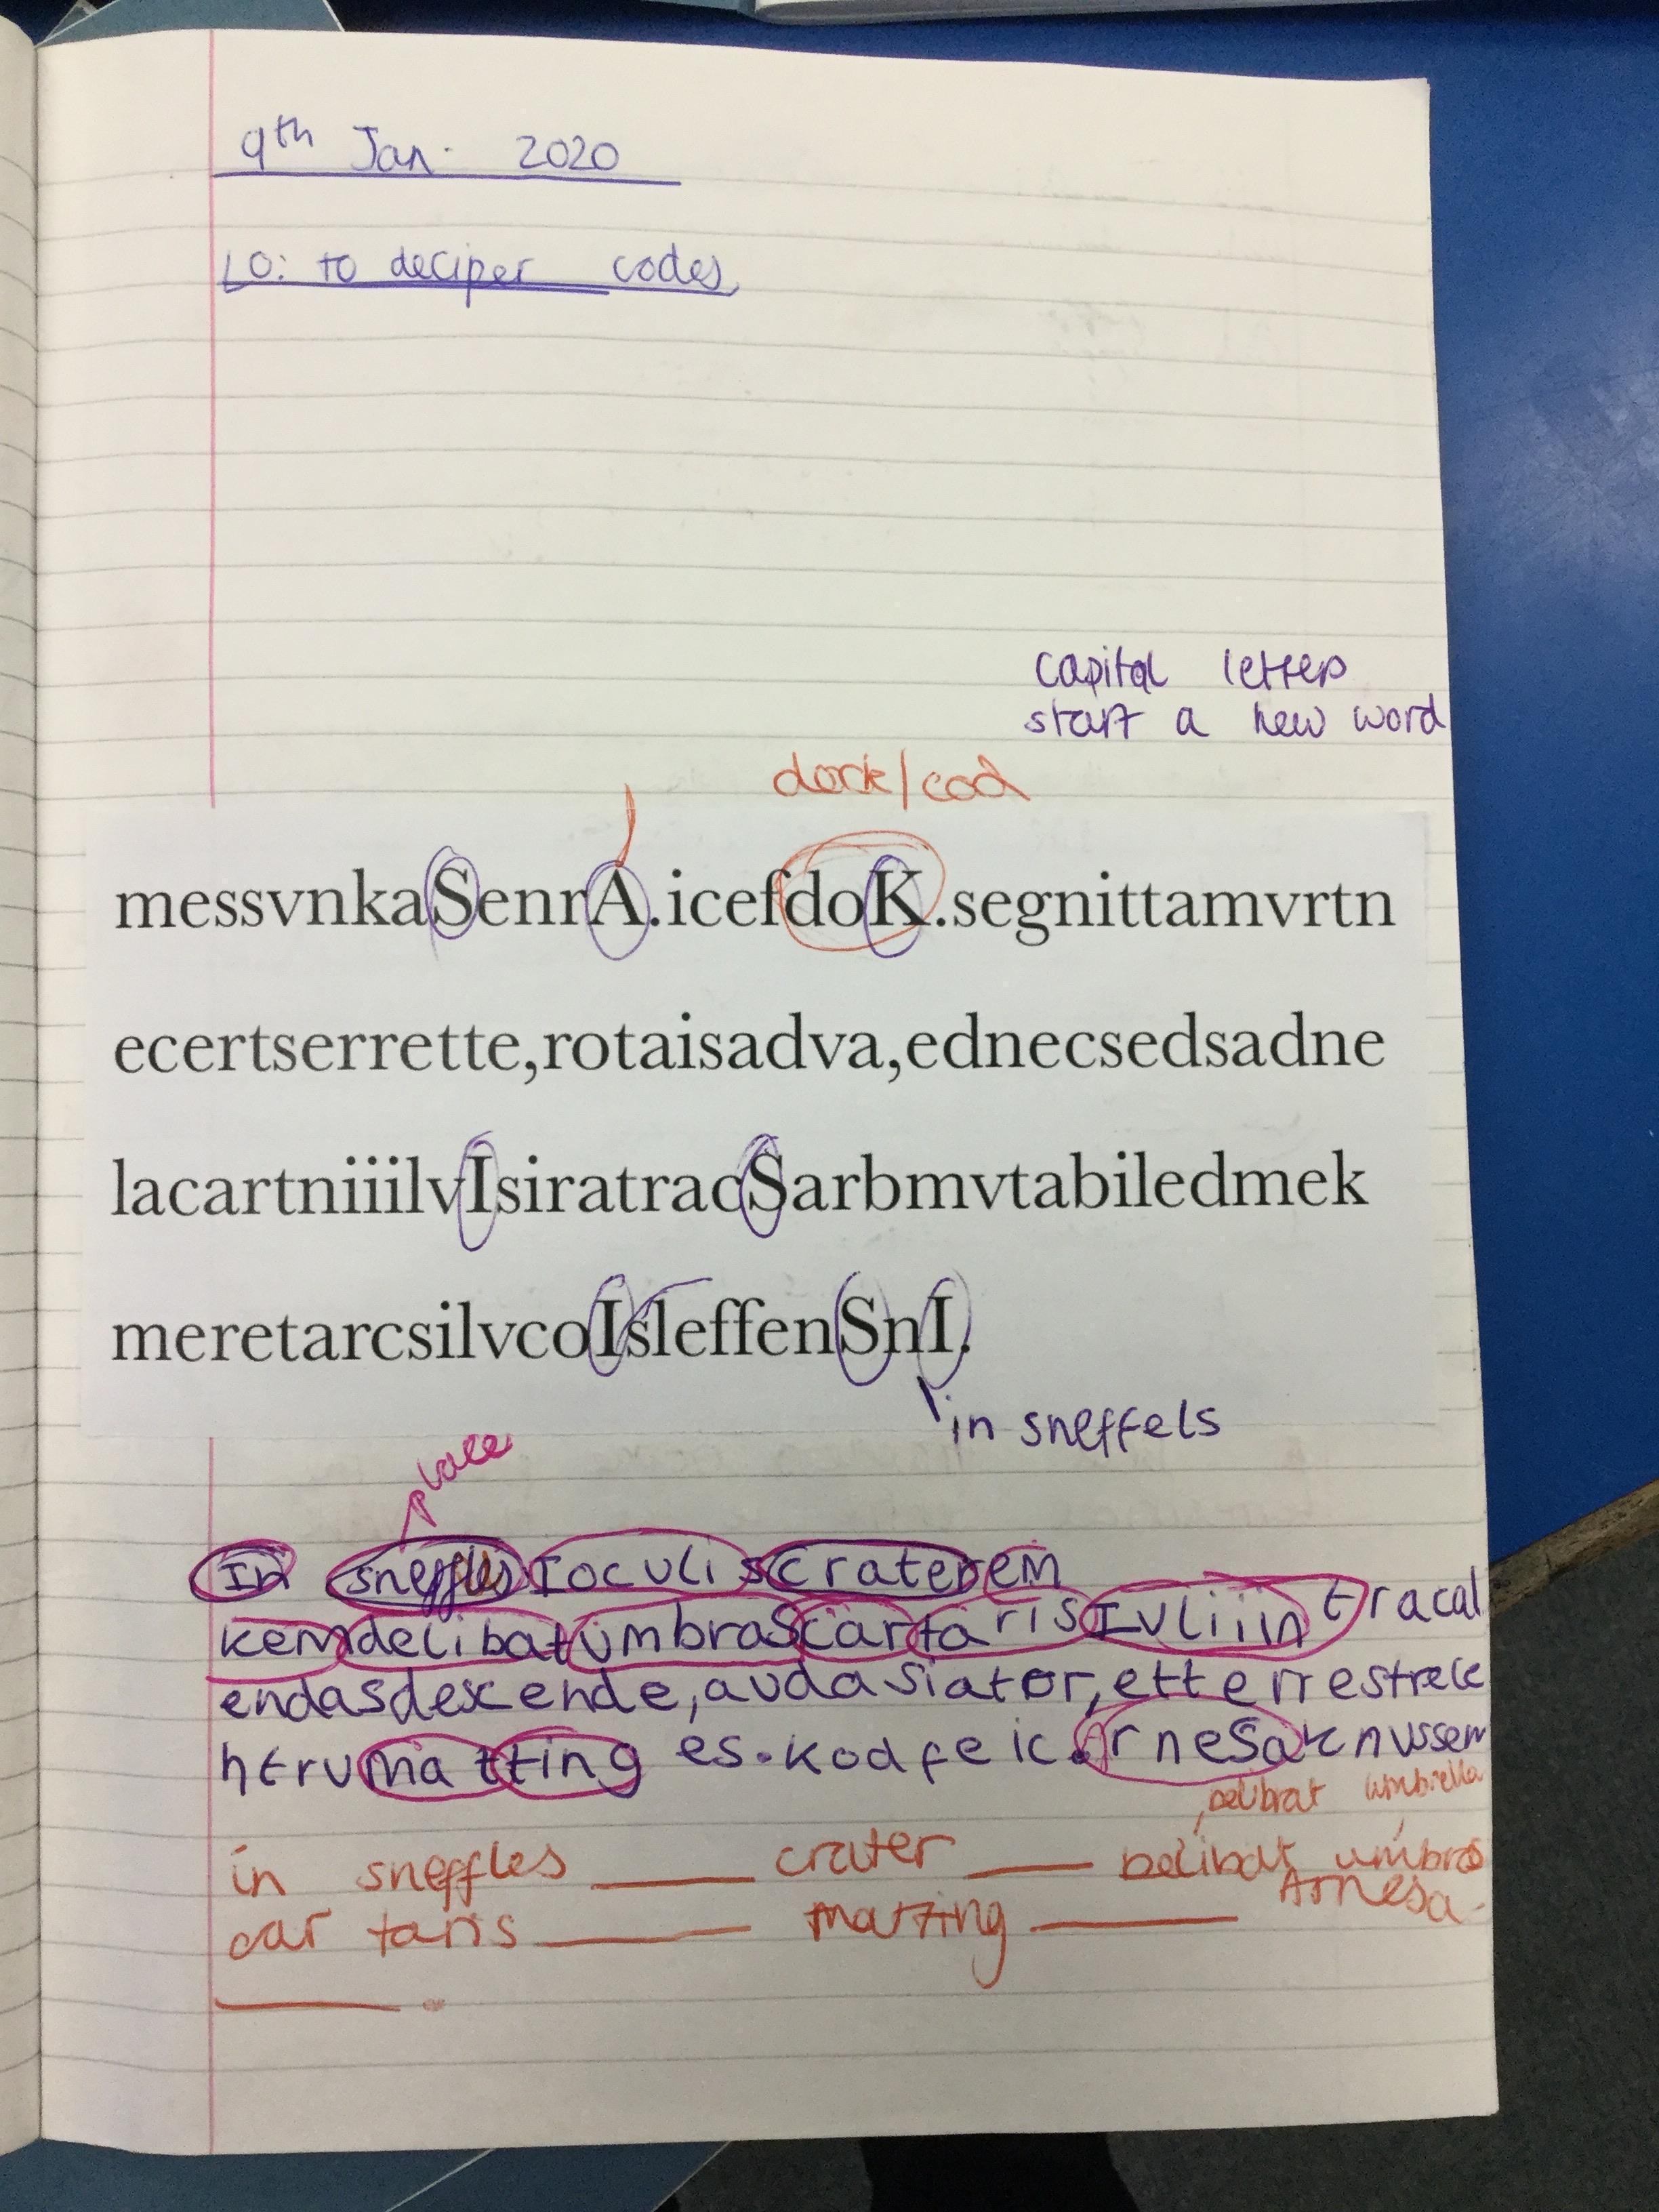 9th Jan. 2020
LO: to deciper codes
capital letters
start a new word
dork/cod
messvnkaSenrA.icefdoK.segnittamvrtn
ecertserrette,rotaisadva,ednecsedsadne
lacartniiilvIsiratracSarbmvtabiledmek
meretarcsilvcoIsleffenSnI.
in sneffels
place
In sneffles Ioculiscraterem
kemdelibatumbraScartarisIvliiintracal
endasdescende,audasiator,etterrestrece
ntrumattinges.kodfeic.ArneSaknussem
delibrat umbrella
in sneffles ____ crater ____ Delibat umbras
car taris ____ matting ____ Arnesa.
____.